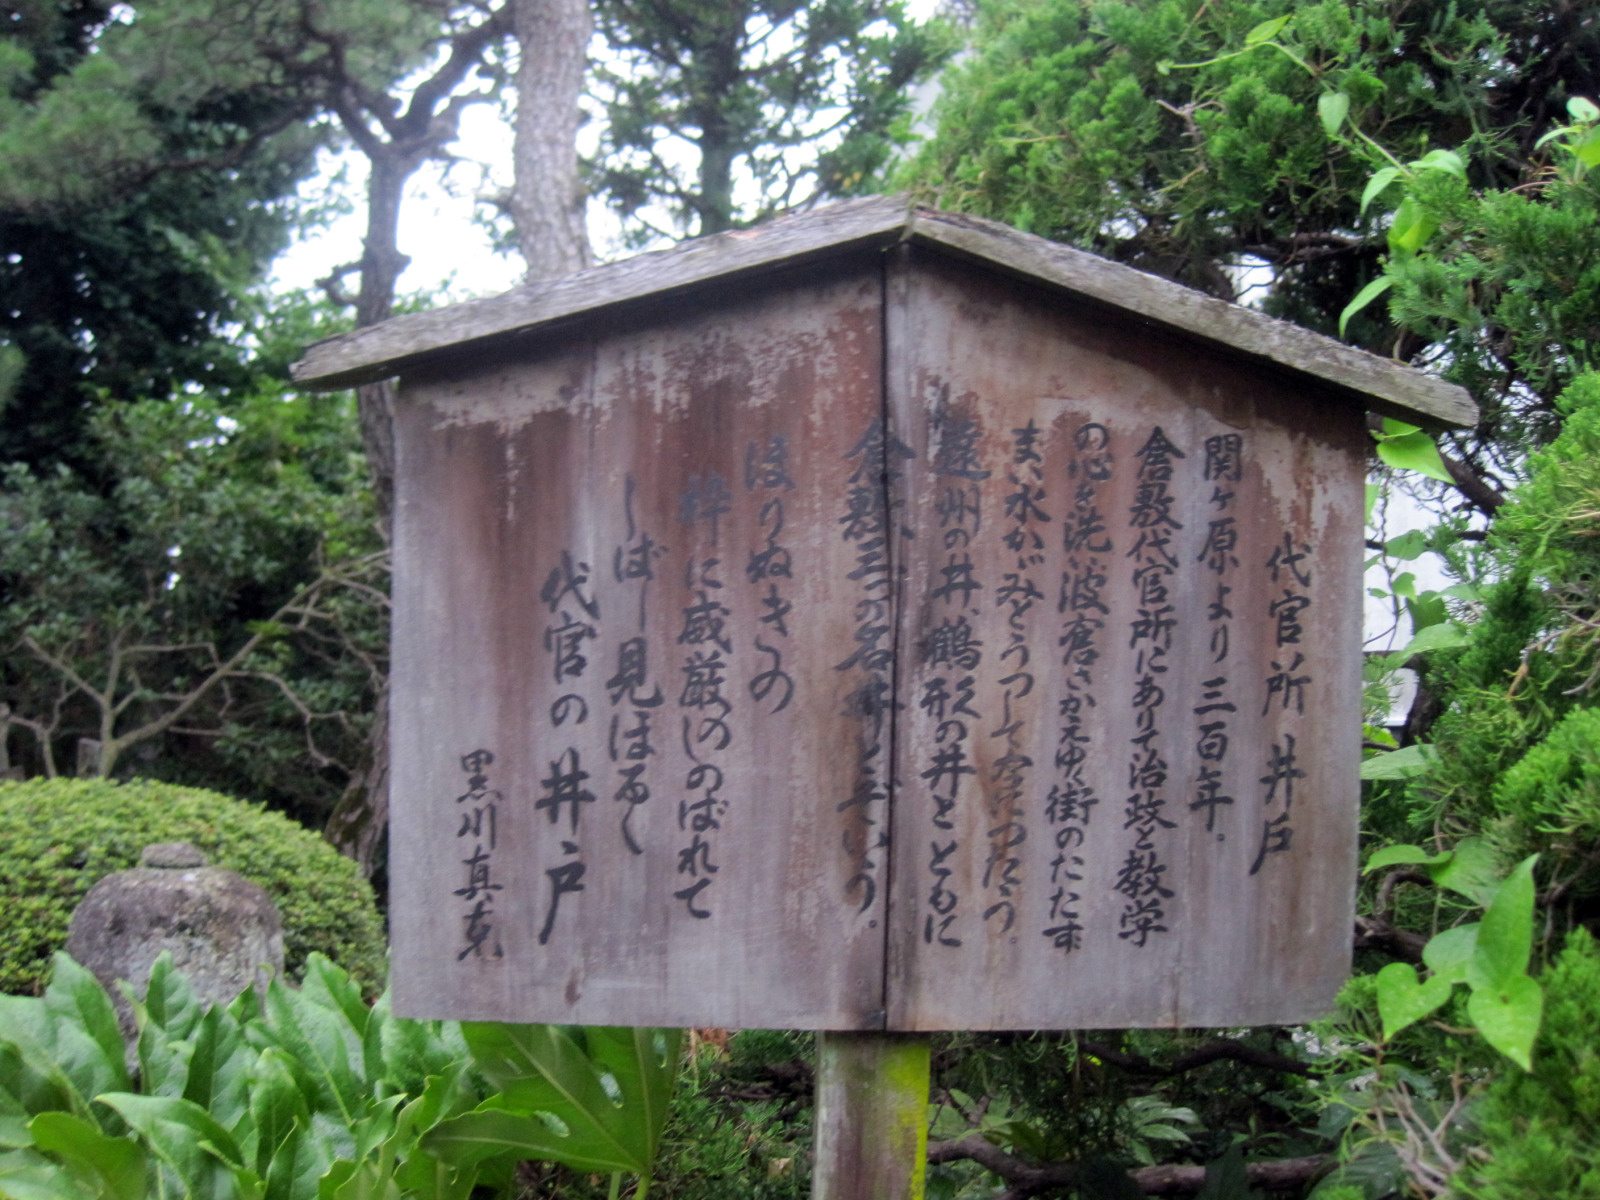 代官所 井戸
関ヶ原より三百年。
倉敷代官所にありて治政と教学
の心を洗い波宮さかえゆく街のたたず
まい水かがみとうつして なおつたう。
遠州の井、鶴形の井とともに
倉敷三つの名井と云いう。
ほりぬきの
粋に威厳のしのばれて
しばし見ほるゝ
代官の井戸
黒川真克